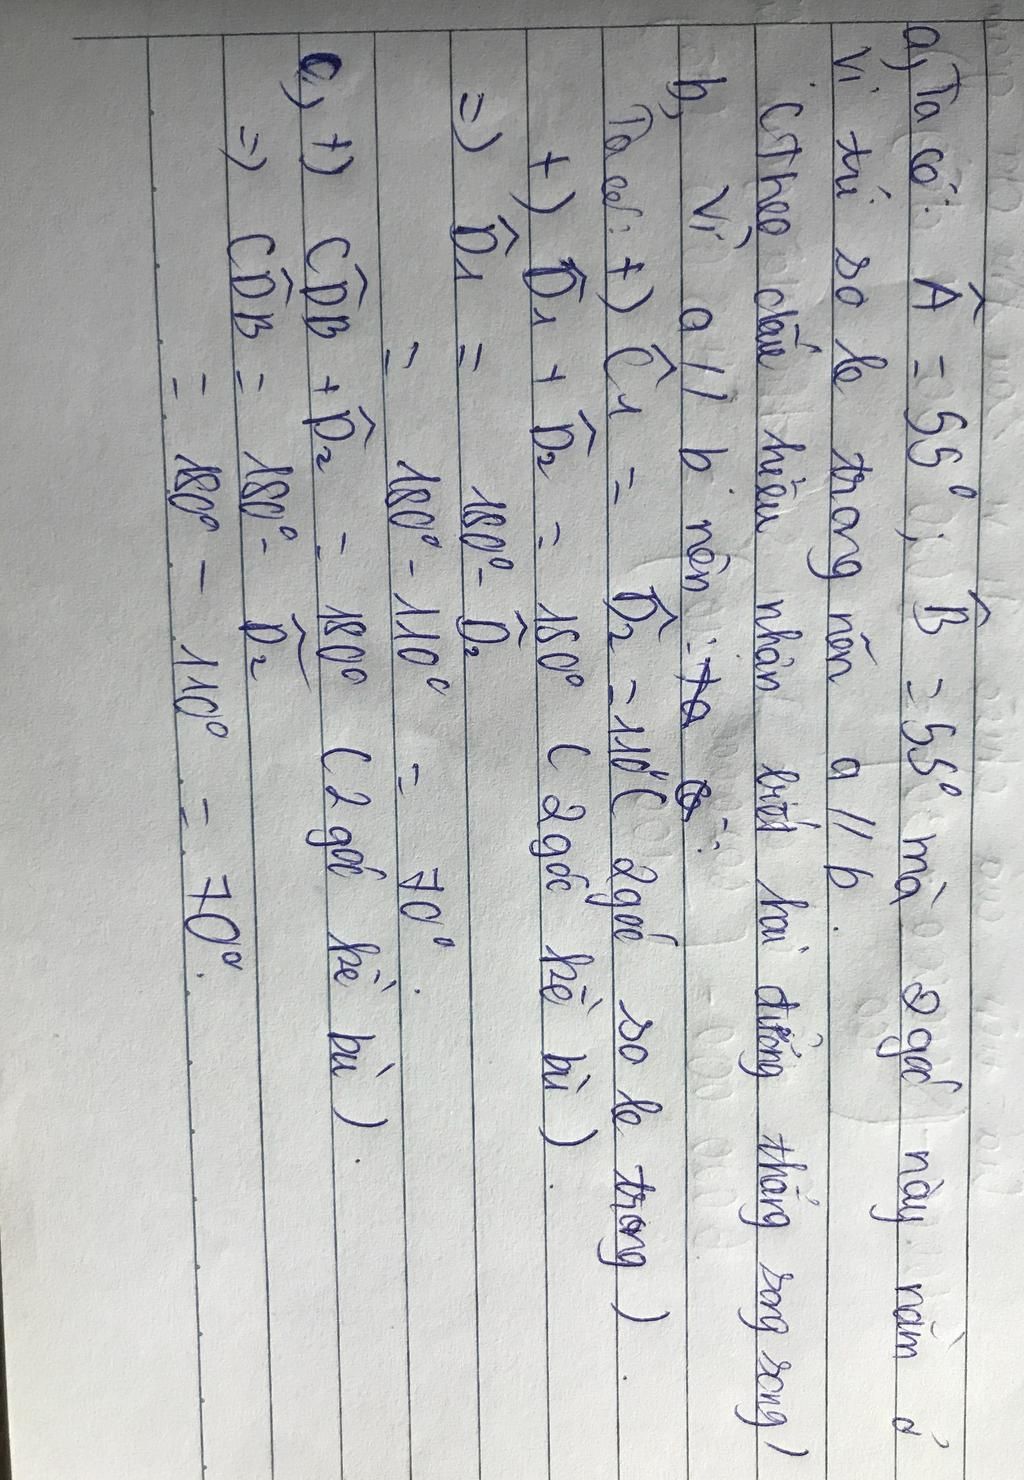 a, Ta có: Â = 55°; B̂ = 55° mà 2 góc này nằm ở
vị trí so le trong nên a // b.
(Theo dấu hiệu nhận biết hai đường thẳng song song)
b, Vì a // b nên: ta có:
Ta có: +) Ĉ1 = D̂2 = 110° (2 góc so le trong).
+) D̂1 + D̂2 = 180° (2 góc kề bù).
=> D̂1 = 180° - D̂2
= 180° - 110° = 70°.
c, +) CD̂B + D̂2 = 180° (2 góc kề bù).
=> CD̂B = 180° - D̂2
= 180° - 110° = 70°.